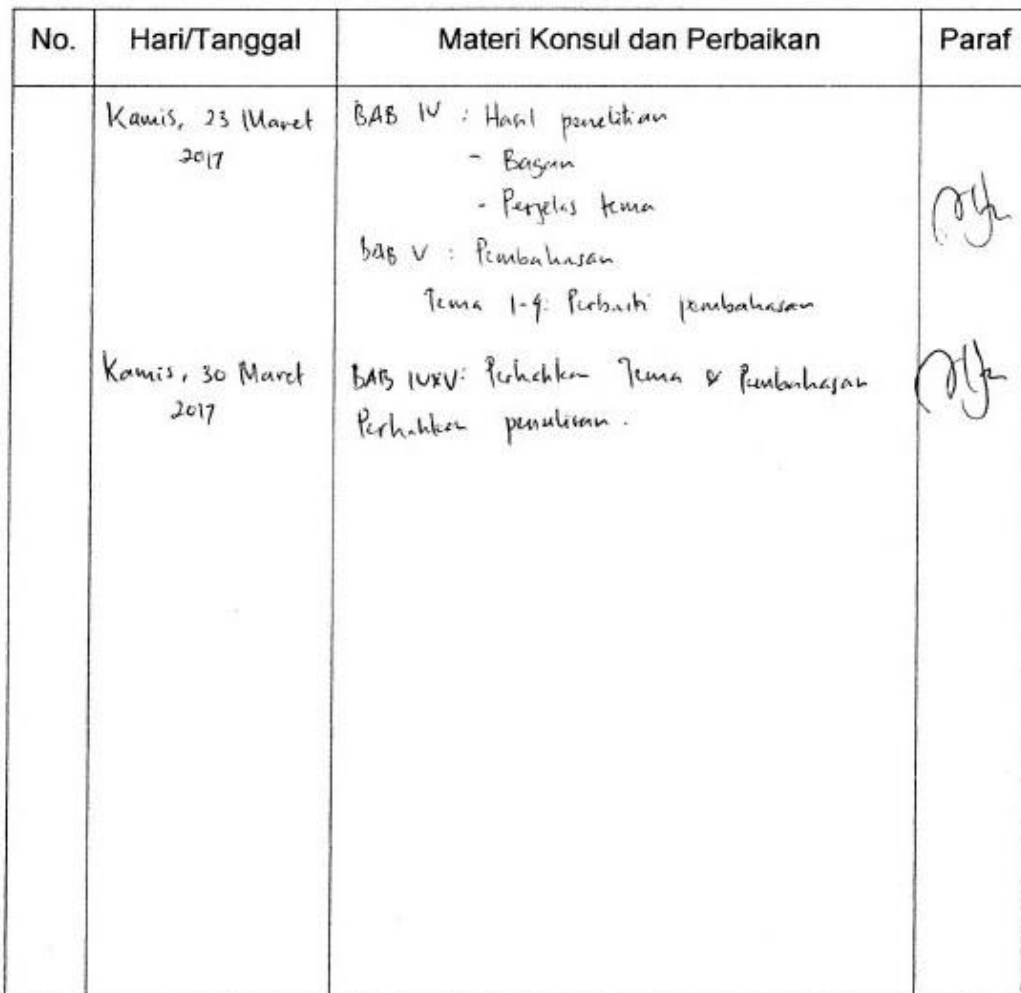 No. Hari/Tanggal Materi Konsul dan Perbaikan Paraf
Kamis, 23 Maret
2017
BAB IV : Hasil penelitian
- Bagan
- Perjelas tema
BAB V : Pembahasan
Tema 1-4: Perbaiki pembahasan
Kamis, 30 Maret
2017
BAB IV & V: Perhatikan Tema & Pembahasan
Perhatikan penulisan.